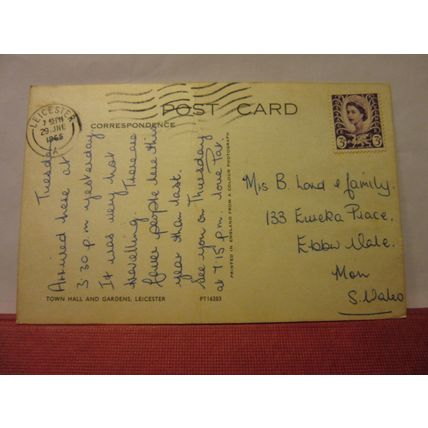 LEICESTER
7 15 PM
29 JNE
1965
POST CARD
CORRESPONDENCE
Tuesday
Arrived here at
3.30 pm yesterday
It was very hot
travelling. There are
fewer people here this
year than last.
See you on Thursday
at 7 15 pm. love Pat.
PRINTED IN ENGLAND FROM A COLOUR PHOTOGRAPH
3D
Mrs B. Lond & family.
133 Eureka Place.
Ebbw Vale.
Mon
S. Wales
TOWN HALL AND GARDENS, LEICESTER
PT16203